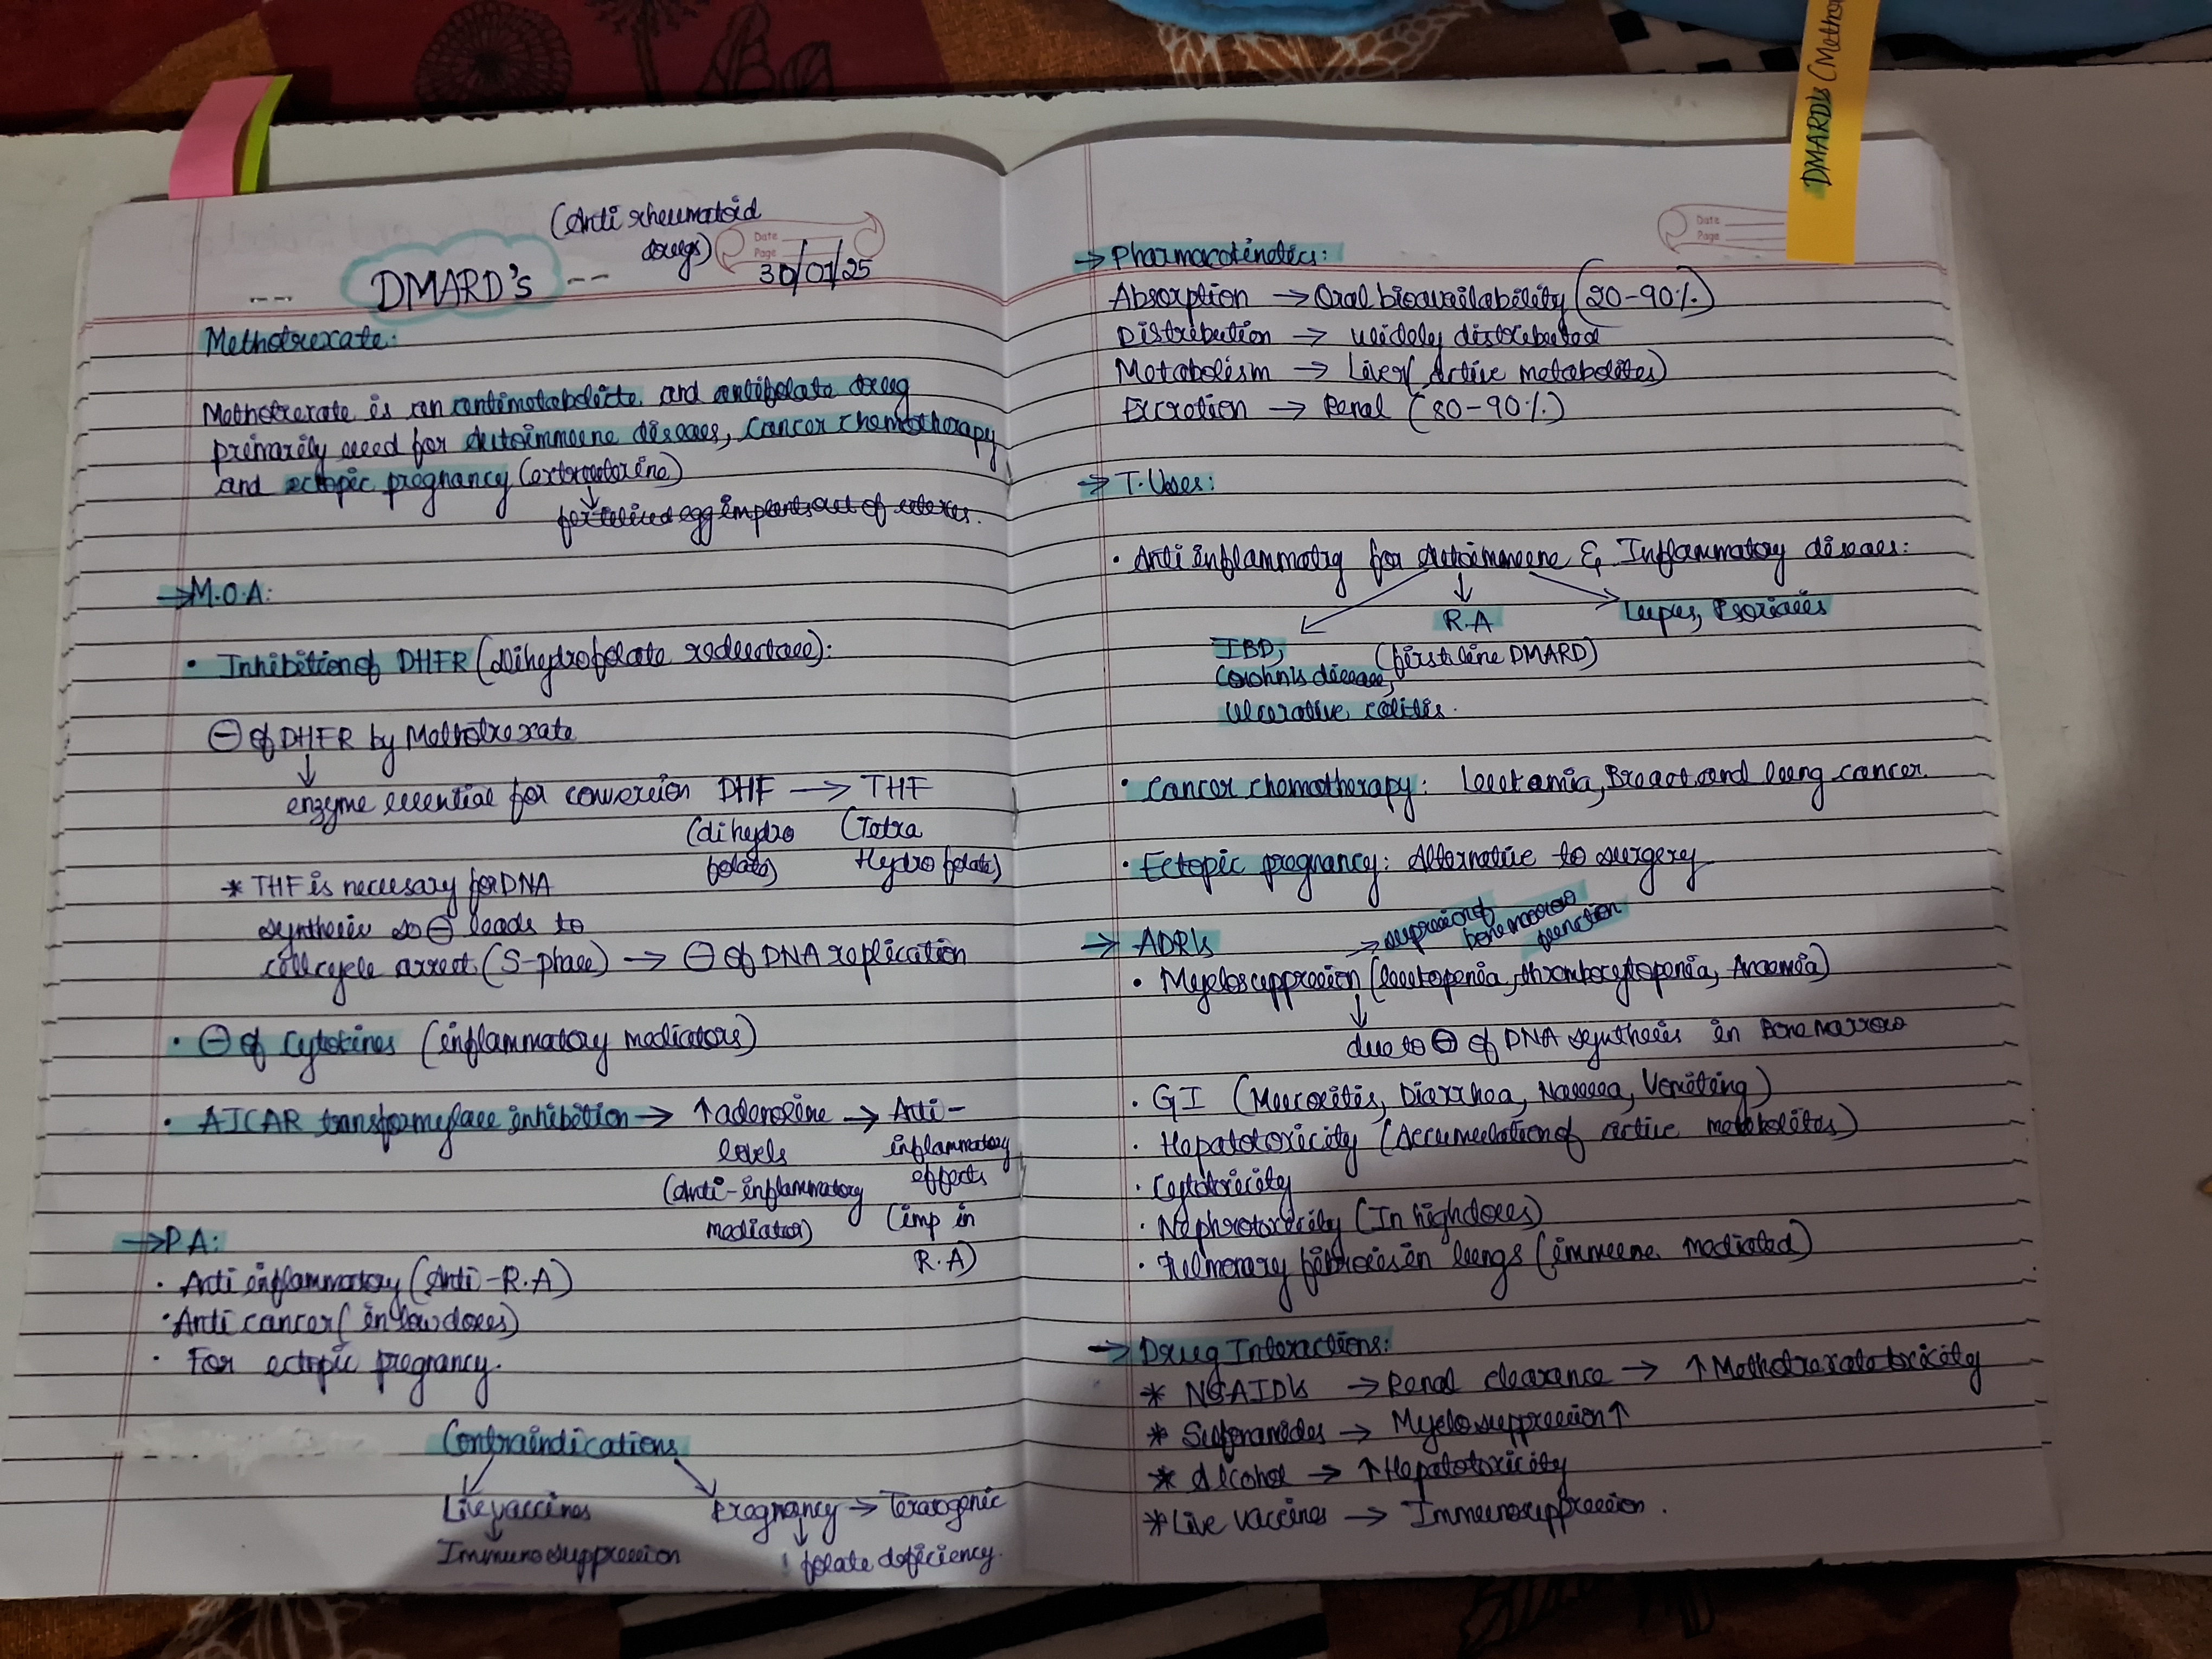 (Anti rheumatoid
drugs)
Date
Page
30/01/25
--- DMARD's ---
Methotrexate:
Methotrexate is an antimetabolite and antifolate drug
primarily used for autoimmune diseases, cancer chemotherapy
and ectopic pregnancy (extrauterine)
↓
fertilized egg implants out of uterus.
→ M.O.A:
• Inhibition of DHFR (dihydrofolate reductase):
⊖ of DHFR by Methotrexate
↓
enzyme essential for conversion DHF → THF
(dihydro folate) (Tetra Hydro folate)
* THF is necessary for DNA
synthesis so ⊖ leads to
cell cycle arrest (S-phase) → ⊖ of DNA replication
• ⊖ of Cytokines (inflammatory mediators)
• AICAR transformylase inhibition → ↑ adenosine → Anti-
levels inflammatory
(Anti-inflammatory effects
mediator) (imp in
R.A)
→ P.A:
• Anti inflammatory (Anti-R.A)
• Anti cancer (in low doses)
• For ectopic pregnancy.
Contraindications
Live vaccines pregnancy → Teratogenic
↓ ↓
Immunosuppression : folate deficiency.
Date
Page
DMARD's (Metho
→ Pharmacokinetics:
Absorption → Oral bioavailability (20-90%)
Distribution → widely distributed
Metabolism → Liver (Active metabolites)
Excretion → Renal (80-90%)
→ T. Uses:
• Anti inflammatory for autoimmune & Inflammatory diseases:
IBD, R.A Lupus, Psoriasis
Crohn's disease, (first line DMARD)
ulcerative colitis.
• Cancer chemotherapy: Leukemia, Breast and lung cancer
• Ectopic pregnancy: Alternative to surgery
→ ADR's → suppressing
bone marrow
function
• Myelosuppression (leukopenia, thrombocytopenia, Anaemia)
↓
due to ⊖ of DNA synthesis in Bone marrow
• GI (Mucositis, Diarrhea, Nausea, Vomiting)
• Hepatotoxicity (Accumulation of active metabolites)
• Cytotoxicity
• Nephrotoxicity (In high doses)
• Pulmonary fibrosis in lungs (immune mediated)
→ Drug Interactions:
* NSAID's → Renal clearance → ↑ Methotrexate toxicity
* Sulfonamides → Myelosuppression ↑
* Alcohol → ↑ Hepatotoxicity
* Live vaccines → Immunosuppression.